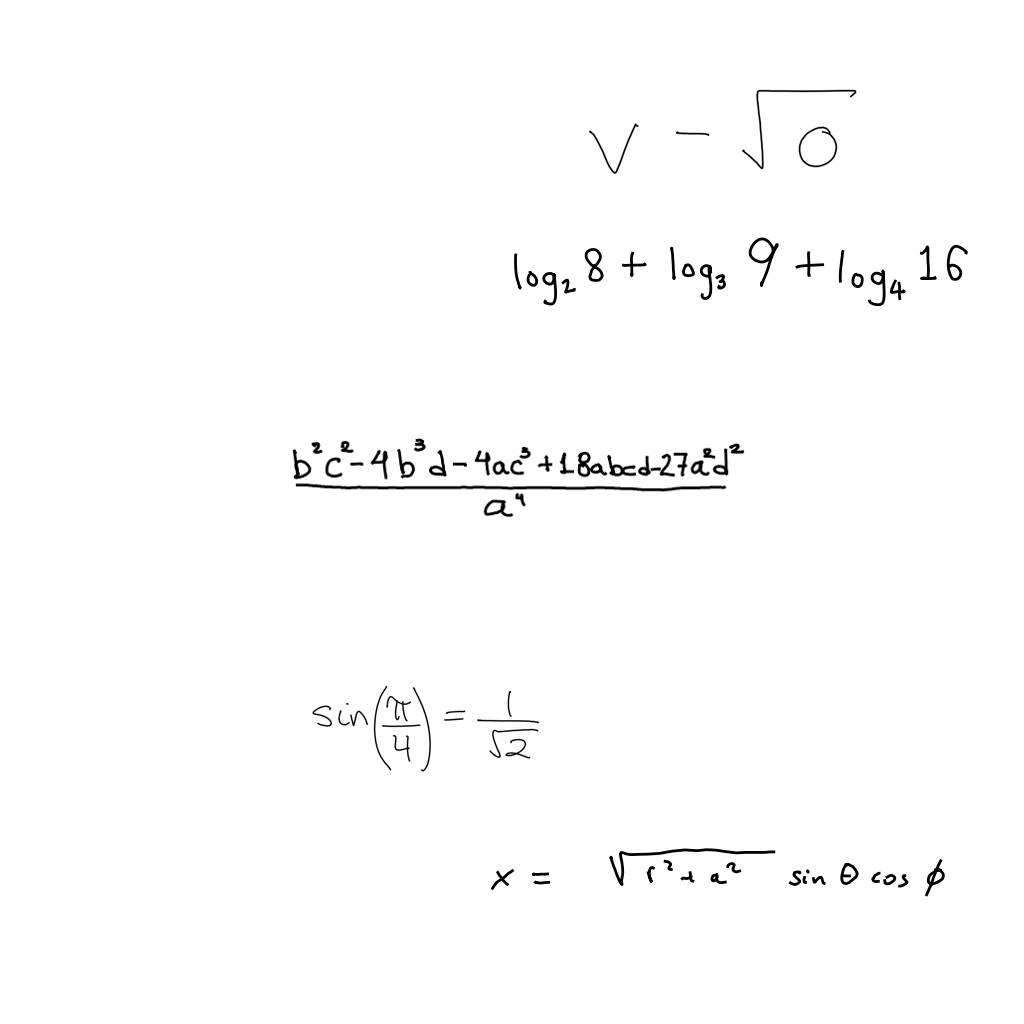 v - \sqrt{0}
\log_2 8 + \log_3 9 + \log_4 16
\frac{b^2c^2 - 4b^3d - 4ac^3 + 18abcd - 27a^2d^2}{a^4}
\sin\left(\frac{\pi}{4}\right) = \frac{1}{\sqrt{2}}
x = \sqrt{r^2 + a^2} \sin \theta \cos \phi